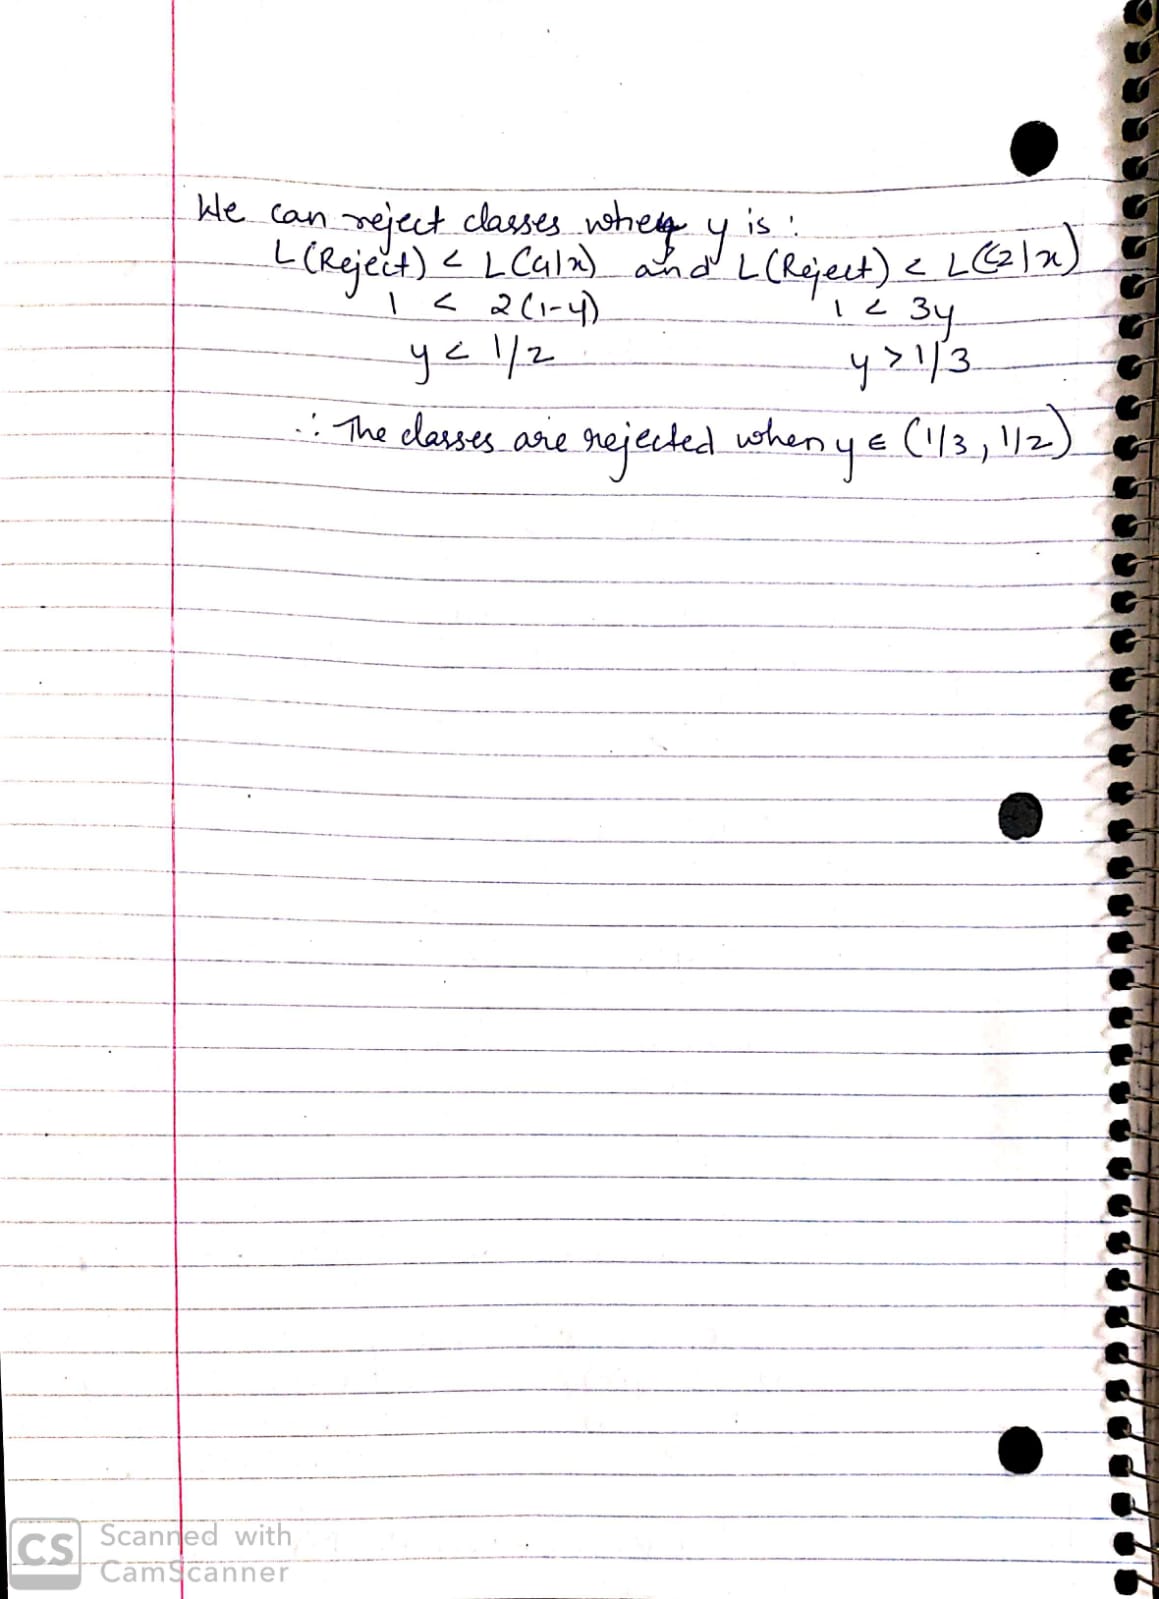 We can reject classes when y is :
L(Reject) < L(C1|x) and L(Reject) < L(C2|x)
1 < 2(1-y) 1 < 3y
y < 1/2 y > 1/3
∴ The classes are rejected when y ∈ (1/3, 1/2)
CS Scanned with
CamScanner